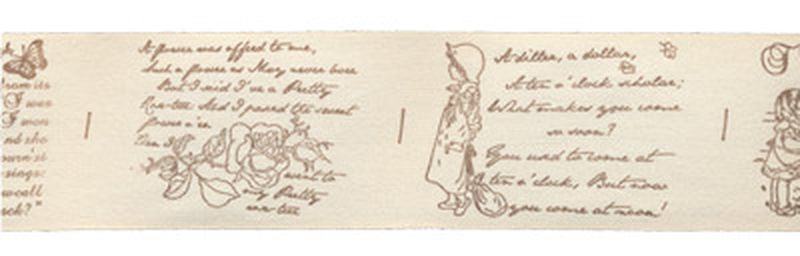 from its
I wer
I won
nd sho
sings:
wcall
A flower was offerd to me,
Such a flower as May never bore
But I said I've a Pretty
Rose-tree And I passed the sweet
flower o'er.
Then I
went to
my Pretty
rose-tree
A diller, a dollar,
A ten o'clock scholar;
What makes you come
so soon?
You used to come at
ten o'clock, But now
you come at noon!